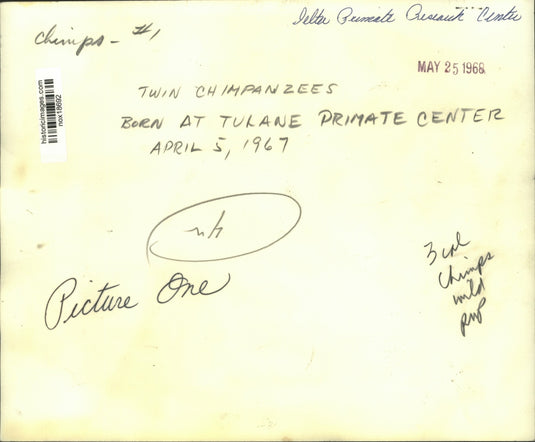 Delta Primate Research Center
Chimps - #1
MAY 25 1968
historicimages.com
nox18692
TWIN CHIMPANZEES
BORN AT TULANE PRIMATE CENTER
APRIL 5, 1967
Picture One
3 col
Chimps
mild